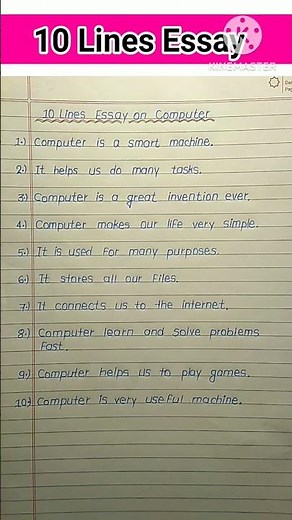 10 Lines Essay
KINEMASTER
10 Lines Essay on Computer
1.) Computer is a smart machine.
2.) It helps us do many tasks.
3.) Computer is a great invention ever.
4.) Computer makes our life very simple.
5.) It is used for many purposes.
6.) It stores all our files.
7.) It connects us to the internet.
8.) Computer learn and solve problems
fast.
9.) Computer helps us to play games.
10.) Computer is very useful machine.